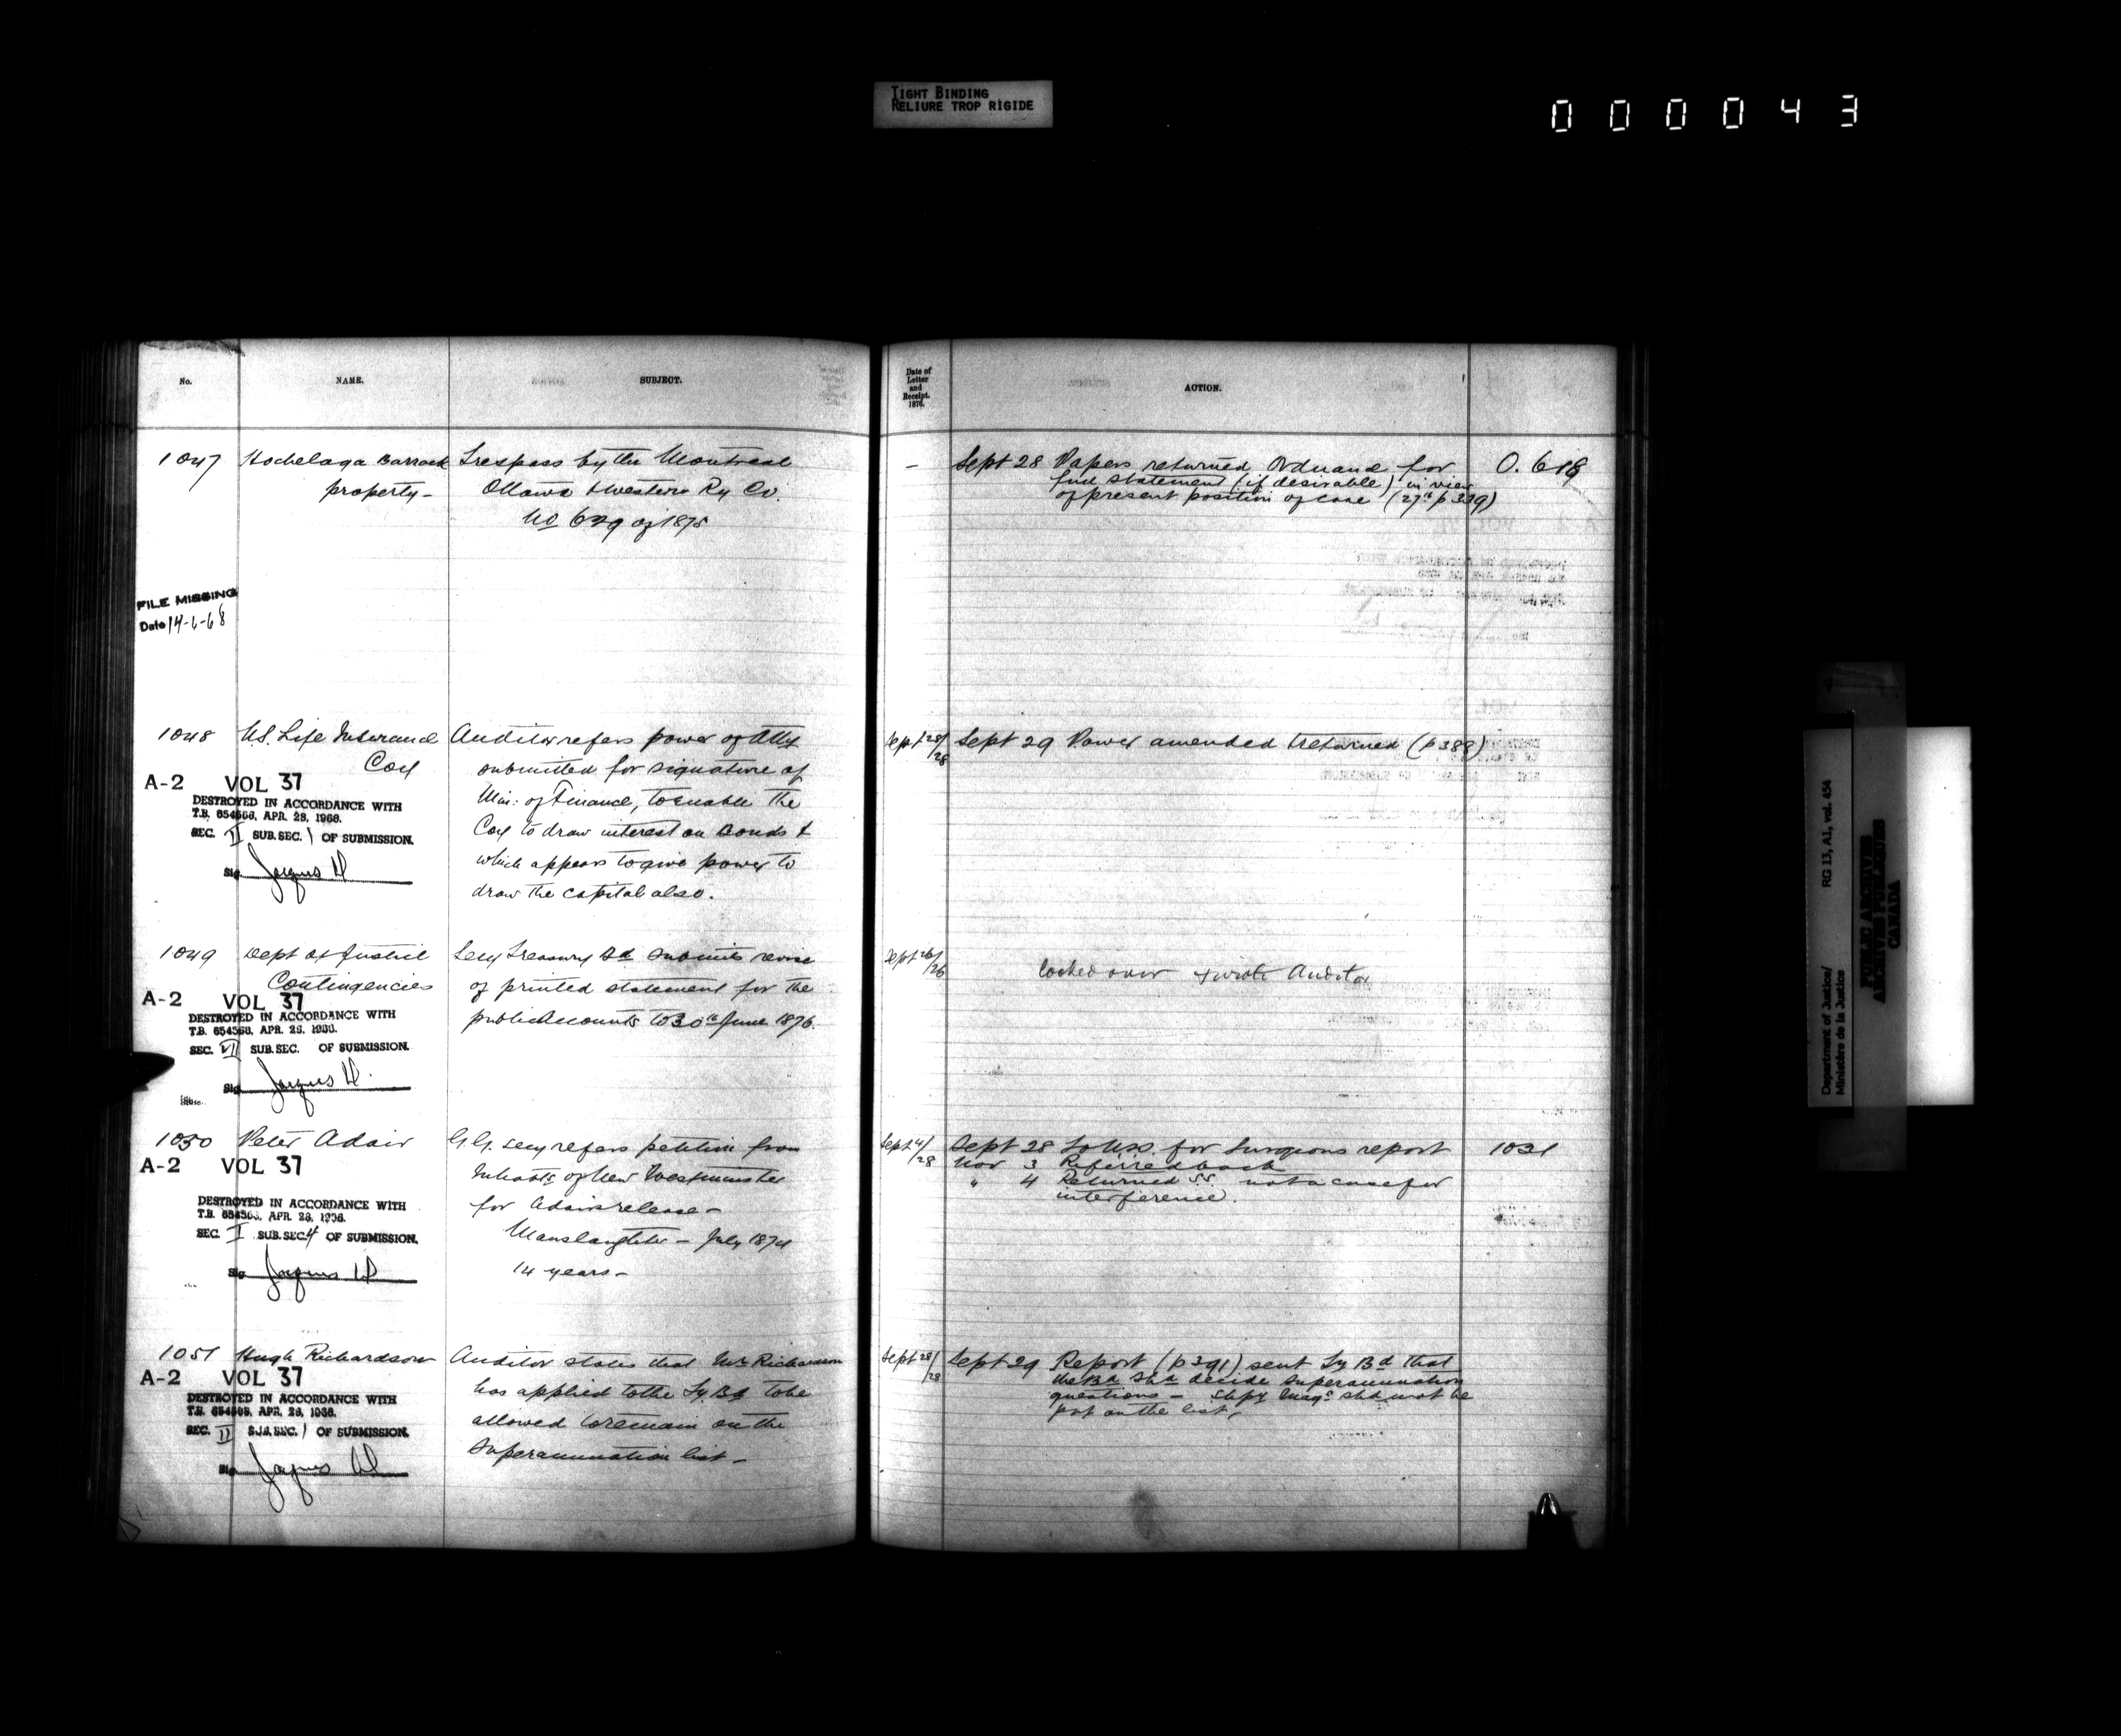 TIGHT BINDING
RELIURE TROP RIGIDE
000043
No.
NAME.
SUBJECT.
1047 Hochelaga Barrack Trespass by the Montreal
property - Ottawa & Western Ry Co.
No 629 of 1875
FILE MISSING
Date 14-6-68
1048 U.S. Life Insurance Auditor refers power of Atty
Coy submitted for signature of
A-2 VOL 37
Min: of Finance, to enable the
DESTROYED IN ACCORDANCE WITH
T.B. 654568, APR. 28, 1966.
Coy to draw interest on Bonds &
SEC. II SUB.SEC. 1 OF SUBMISSION.
which appears to give power to
Sig Jacques
draw the capital also.
1049 Dept of Justice Secy Treasury Bd submits revise
Contingencies of printed statement for the
A-2 VOL 37
public Accounts to 30th June 1876.
DESTROYED IN ACCORDANCE WITH
T.B. 654568, APR. 28, 1966.
SEC. VII SUB.SEC. OF SUBMISSION.
Sig Jacques
1050 Peter Adair G.G. Secy refers petition from
A-2 VOL 37
Inhabts of New Westminster
DESTROYED IN ACCORDANCE WITH
T.B. 654568, APR. 28, 1966.
for Adairs release -
SEC. I SUB.SEC. 4 OF SUBMISSION.
Manslaughter - July 1874
Sig Jacques
14 years -
1051 Hugh Richardson Auditor states that Mr Richardson
A-2 VOL 37
has applied to the Ty Bd to be
DESTROYED IN ACCORDANCE WITH
T.B. 654568, APR. 28, 1966.
allowed to remain on the
SEC. II SUB.SEC. 1 OF SUBMISSION.
Superannuation list -
Sig Jacques
Date of
Letter
and
Receipt.
1876.
ACTION.
- Sept 28 Papers returned Ordnance for O. 618
full statement (if desirable) in view
of present position of case (27th p 339)
Sept 28/28 Sept 29 Power amended & returned (p 388)
Sept 26/26 Looked over & wrote Auditor
Sept 4/28 Sept 28 To USS. for Surgeons report 1031
Nov 3 Referred back
" 4 Returned not a case for
interference.
Sept 28/28 Sept 29 Report (p 391) sent Ty Bd that
the Bd shd decide superannuation
questions - Stipy Mags shd not be
put on the list,
Department of Justice/
Ministère de la Justice
RG 13, A1, vol. 454
PUBLIC ARCHIVES
ARCHIVES PUBLIQUES
CANADA